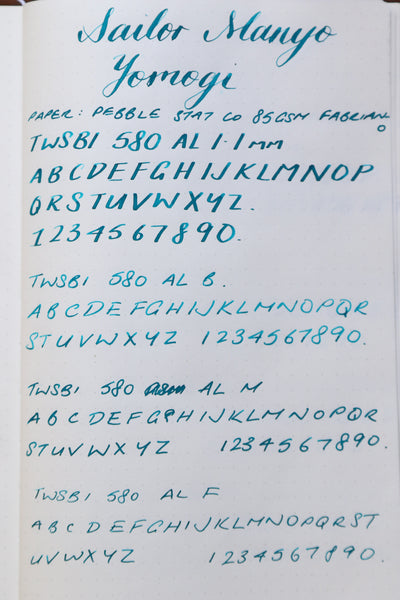 Sailor Manyo
Yomogi
PAPER: PEBBLE STAT CO 85GSM FABRIANO
TWSBI 580 AL 1.1mm
ABCDEFGHIJKLMNOP
QRSTUVWXYZ.
1234567890.
TWSBI 580 AL B.
ABCDEFGHIJKLMNOPQR
STUVWXYZ 1234567890.
TWSBI 580 AL M
ABCDEFGHIJKLMNOPQR
STUVWXYZ 1234567890.
TWSBI 580 AL F
ABCDEFGHIJKLMNOPQRST
UVWXYZ 1234567890.